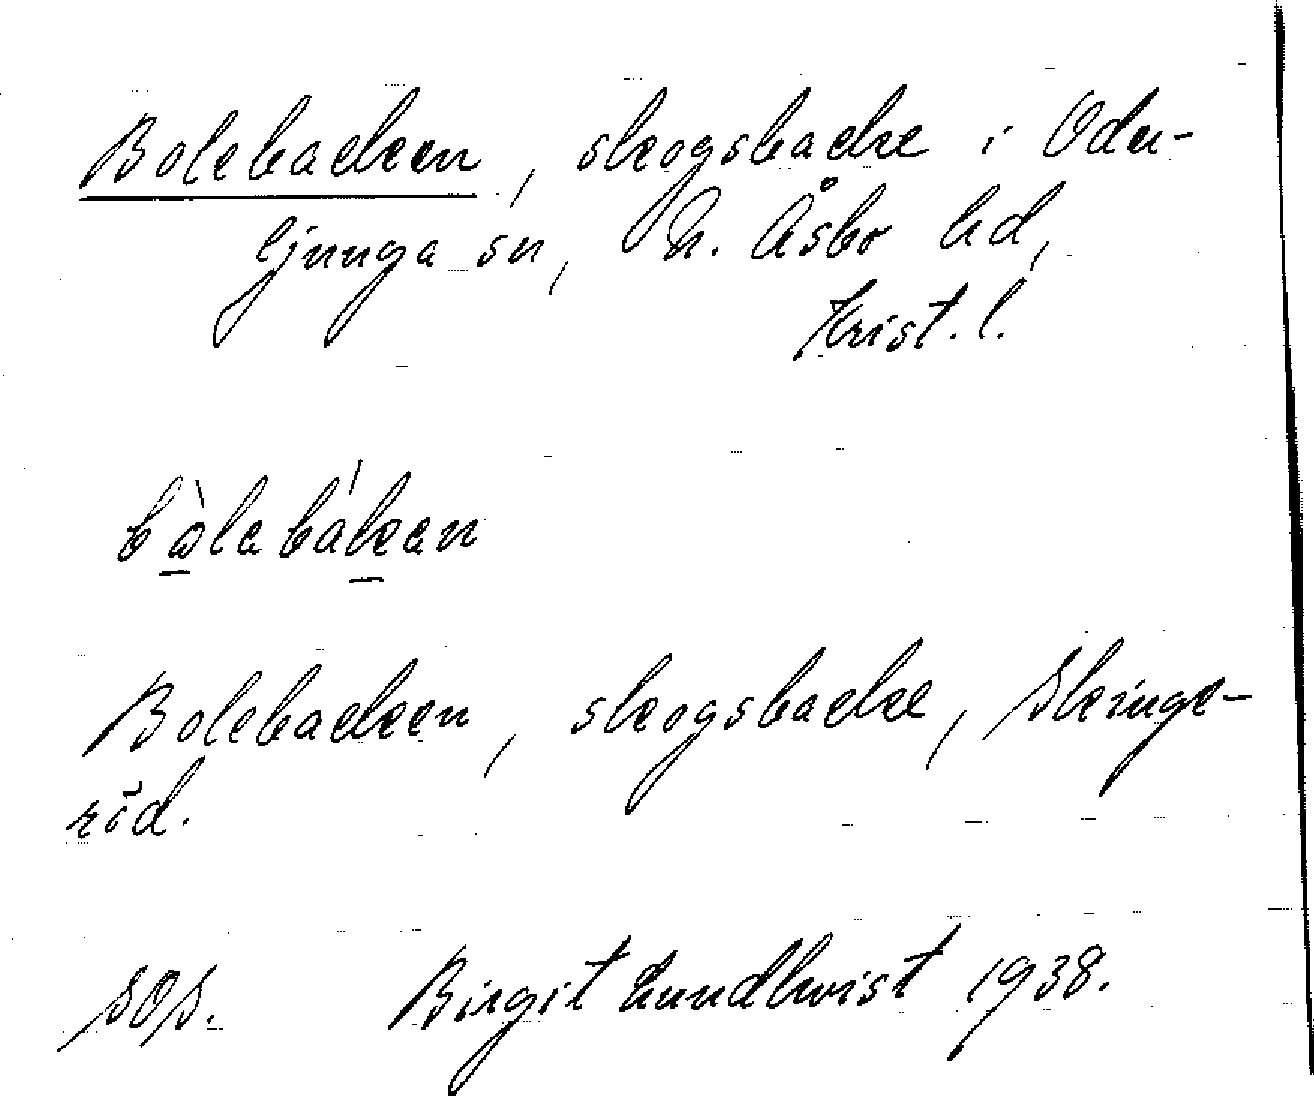 Bolebacken, skogsbacke i Oder-
ljunga sn, N. Åsbo hd,
Krist. l.
bòlebákan
Bolebacken, skogsbacke, Skinge-
röd.
SOS. Birgit Lundkvist 1938.